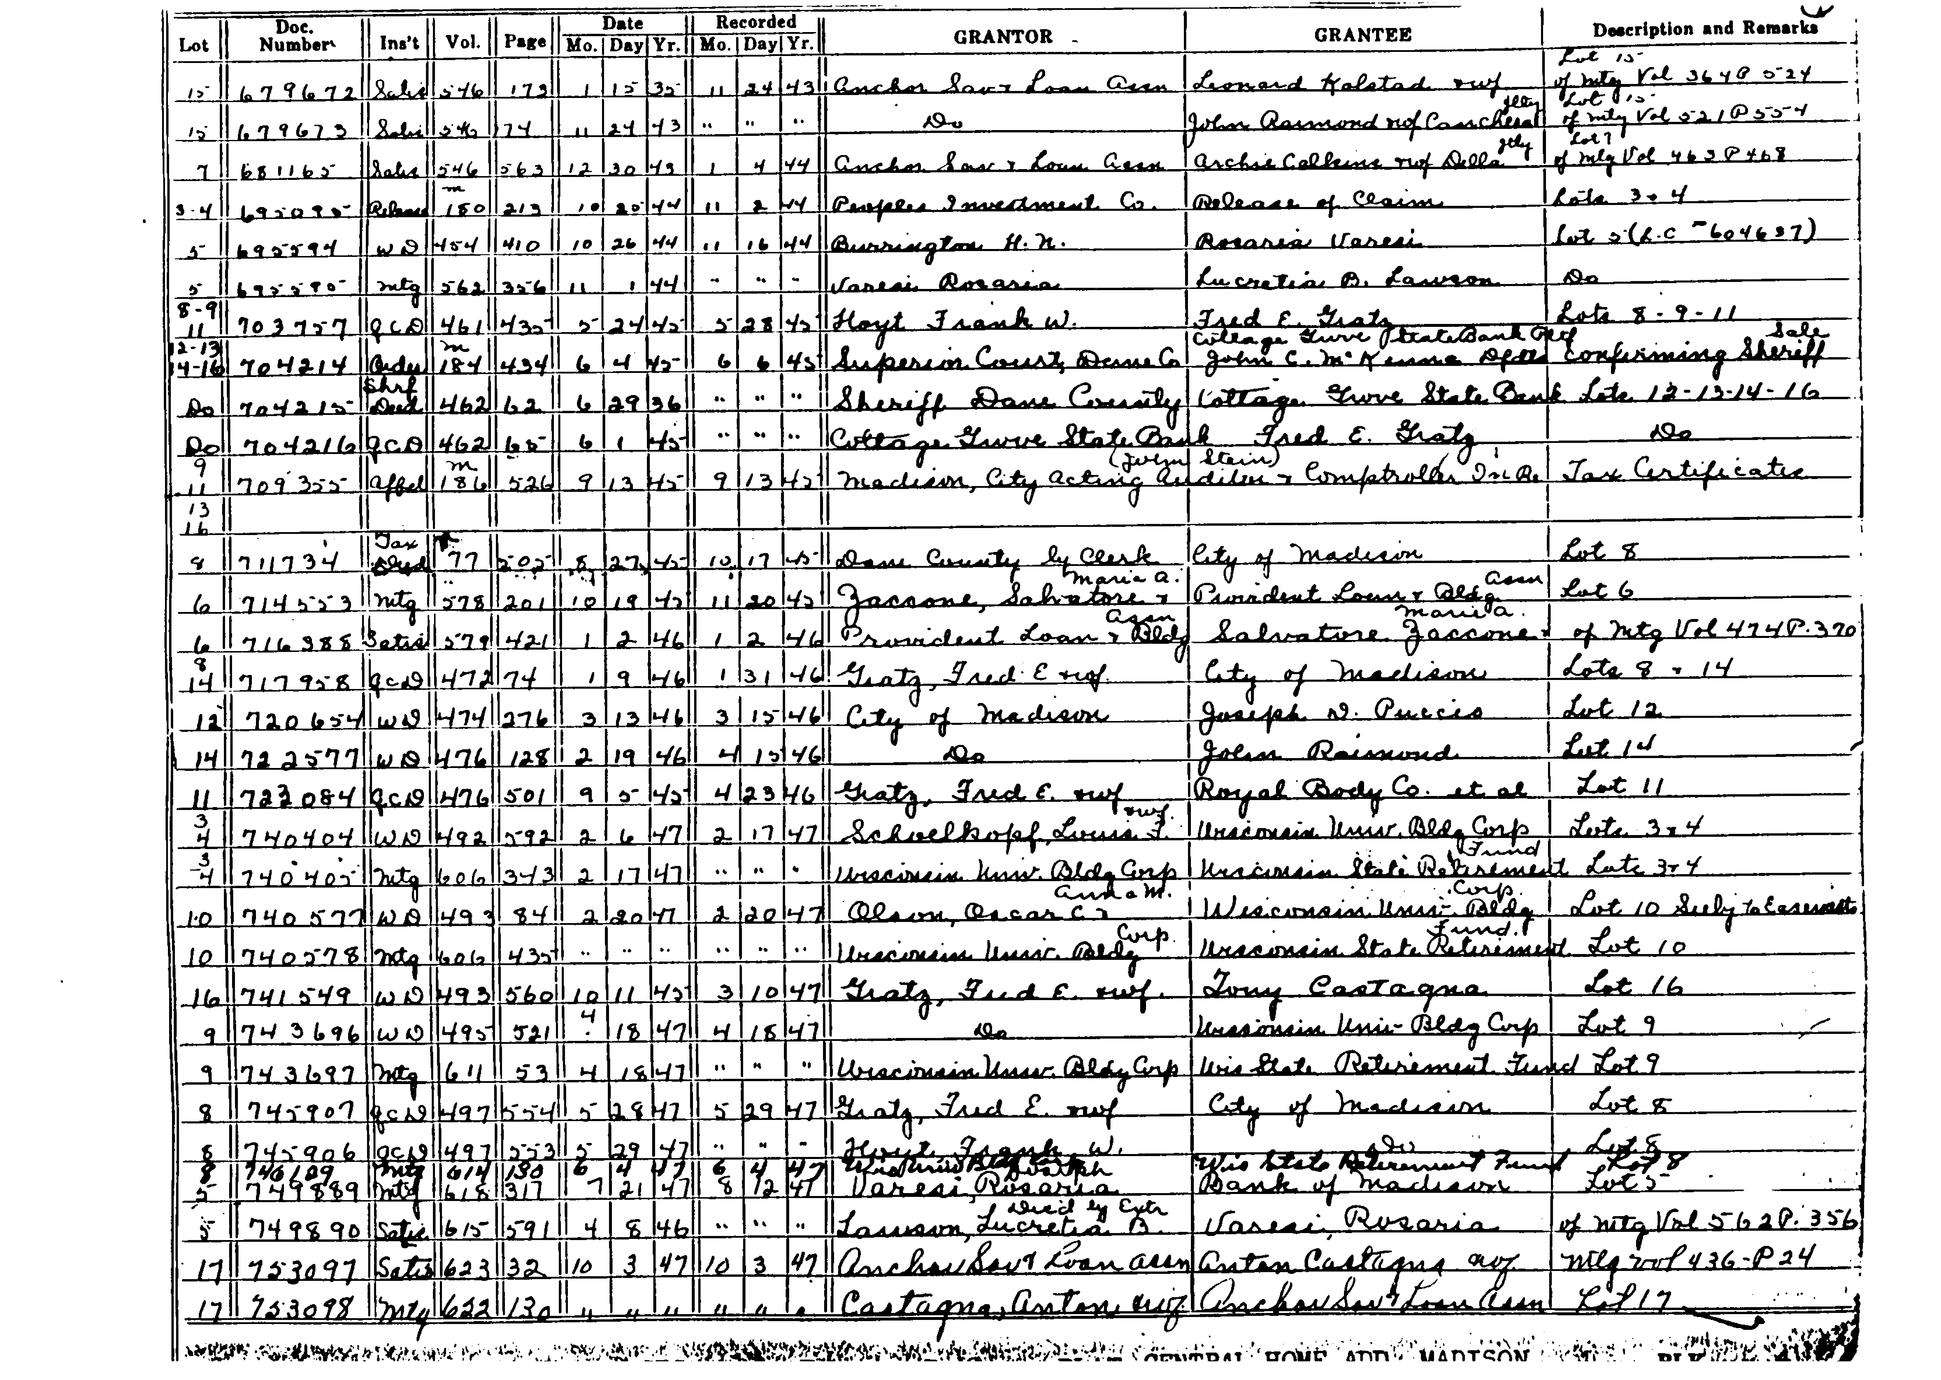 Lot Doc. Number Ins't Vol. Page Date Mo. Day Yr. Recorded Mo. Day Yr. GRANTOR GRANTEE Description and Remarks
15 679672 Satis 546 173 1 15 35 11 24 43 Anchor Sav & Loan Assn Leonard Halstad & wf Lot 15 of mtg Vol 364 P 524
15 679673 Satis 546 174 11 24 43 " " " Do John Raimond & wf jtly Lot 15 of mtg Vol 521 P 554
7 681165 Satis 546 563 12 30 43 1 4 44 Anchor Sav & Loan Assn Archie Calkins & wf Della jtly Lot 7 of mtg Vol 463 P 468
3-4 695095 Release m 180 213 10 25 44 11 2 44 Peoples Investment Co. Release of Claim Lots 3 & 4
5 695594 WD 454 410 10 26 44 11 16 44 Burrington H. N. Rosaria Varesi Lot 5 (L.C - 604637)
5 695595 Mtg 562 356 11 1 44 " " " Varesi Rosaria Lucretia B. Lawson Do
8-9 11 703757 QCD 461 435 5 24 45 5 28 45 Hoyt Frank W. Fred E. Gratz Lots 8-9-11
12-13 14-16 704214 Order m 184 434 6 4 45 6 6 45 Superior Court, Dane Co Cottage Grove State Bank Pltf John C. McKenna Dfdts Confirming Sheriff Sale
Do 704215 Shrf Deed 462 62 6 29 36 " " " Sheriff Dane County Cottage Grove State Bank Lots 12-13-14-16
Do 704216 QCD 462 65 6 1 45 " " " Cottage Grove State Bank Fred E. Gratz Do
9 11 13 16 709355 Affd m 186 526 9 13 45 9 13 45 Madison, City Acting Auditor & Comptroller (John Stein) In Re Tax Certificates
8 711734 Tax Deed 77 505 8 27 45 10 17 45 Dane County by Clerk City of Madison Lot 8
6 714553 Mtg 578 201 10 19 45 11 20 45 Zaccone, Salvatore & Maria A. Provident Loan & Bldg Assn Lot 6
6 716388 Satis 579 421 1 2 46 1 2 46 Provident Loan & Bldg Assn Salvatore Zaccone & Maria A. of Mtg Vol 474 P. 370
8 14 717958 QCD 472 74 1 9 46 1 31 46 Gratz, Fred E & wf. City of Madison Lots 8 & 14
12 720654 WD 474 276 3 13 46 3 15 46 City of Madison Joseph D. Puccio Lot 12
14 722577 WD 476 128 2 19 46 4 15 46 Do John Raimond Lot 14
11 723084 QCD 476 501 9 5 45 4 23 46 Gratz, Fred E. & wf Royal Body Co. et al Lot 11
3 4 740404 WD 492 592 2 6 47 2 17 47 Schoelkopf, Louis F. & wf. Wisconsin Univ. Bldg Corp Lots 3 & 4
3 4 740405 Mtg 606 343 2 17 47 " " " Wisconsin Univ. Bldg Corp Wisconsin State Retirement Fund Lots 3 & 4
10 740577 WD 493 84 2 20 47 2 20 47 Olson, Oscar C & Anna M. Wisconsin Univ. Bldg Corp. Lot 10 Subj to Easements
10 740578 Mtg 606 435 " " " " " " Wisconsin Univ. Bldg Corp. Wisconsin State Retirement Fund. Lot 10
16 741549 WD 493 560 10 11 45 3 10 47 Gratz, Fred E. & wf. Tony Castagna Lot 16
9 743696 WD 495 521 4 18 47 4 18 47 Do Wisconsin Univ Bldg Corp Lot 9
9 743697 Mtg 611 53 4 18 47 " " " Wisconsin Univ. Bldg Corp Wis State Retirement Fund Lot 9
8 745907 QCD 497 554 5 28 47 5 29 47 Gratz, Fred E. & wf City of Madison Lot 8
8 745906 QCD 497 553 5 29 47 " " " Hoyt Frank W. Do Lot 8
8 746129 Mtg 614 130 6 4 47 6 4 47 Wis Univ Bldg Corp Wis State Retirement Fund Lot 8
5 749889 Mtg 618 317 7 21 47 8 12 47 Varesi, Rosaria Bank of Madison Lot 5
5 749890 Satis 615 591 4 8 46 " " " Lawson, Lucretia B. Dec'd by Extr Varesi, Rosaria of Mtg Vol 562 P. 356
17 753097 Satis 623 32 10 3 47 10 3 47 Anchor Sav & Loan assn Anton Castagna & wf Mtg Vol 436-P 24
17 753098 Mtg 622 130 " " " " " " Castagna, Anton & wf Anchor Sav & Loan Assn Lot 17
CENTRAL HOME ADD. MADISON BLK